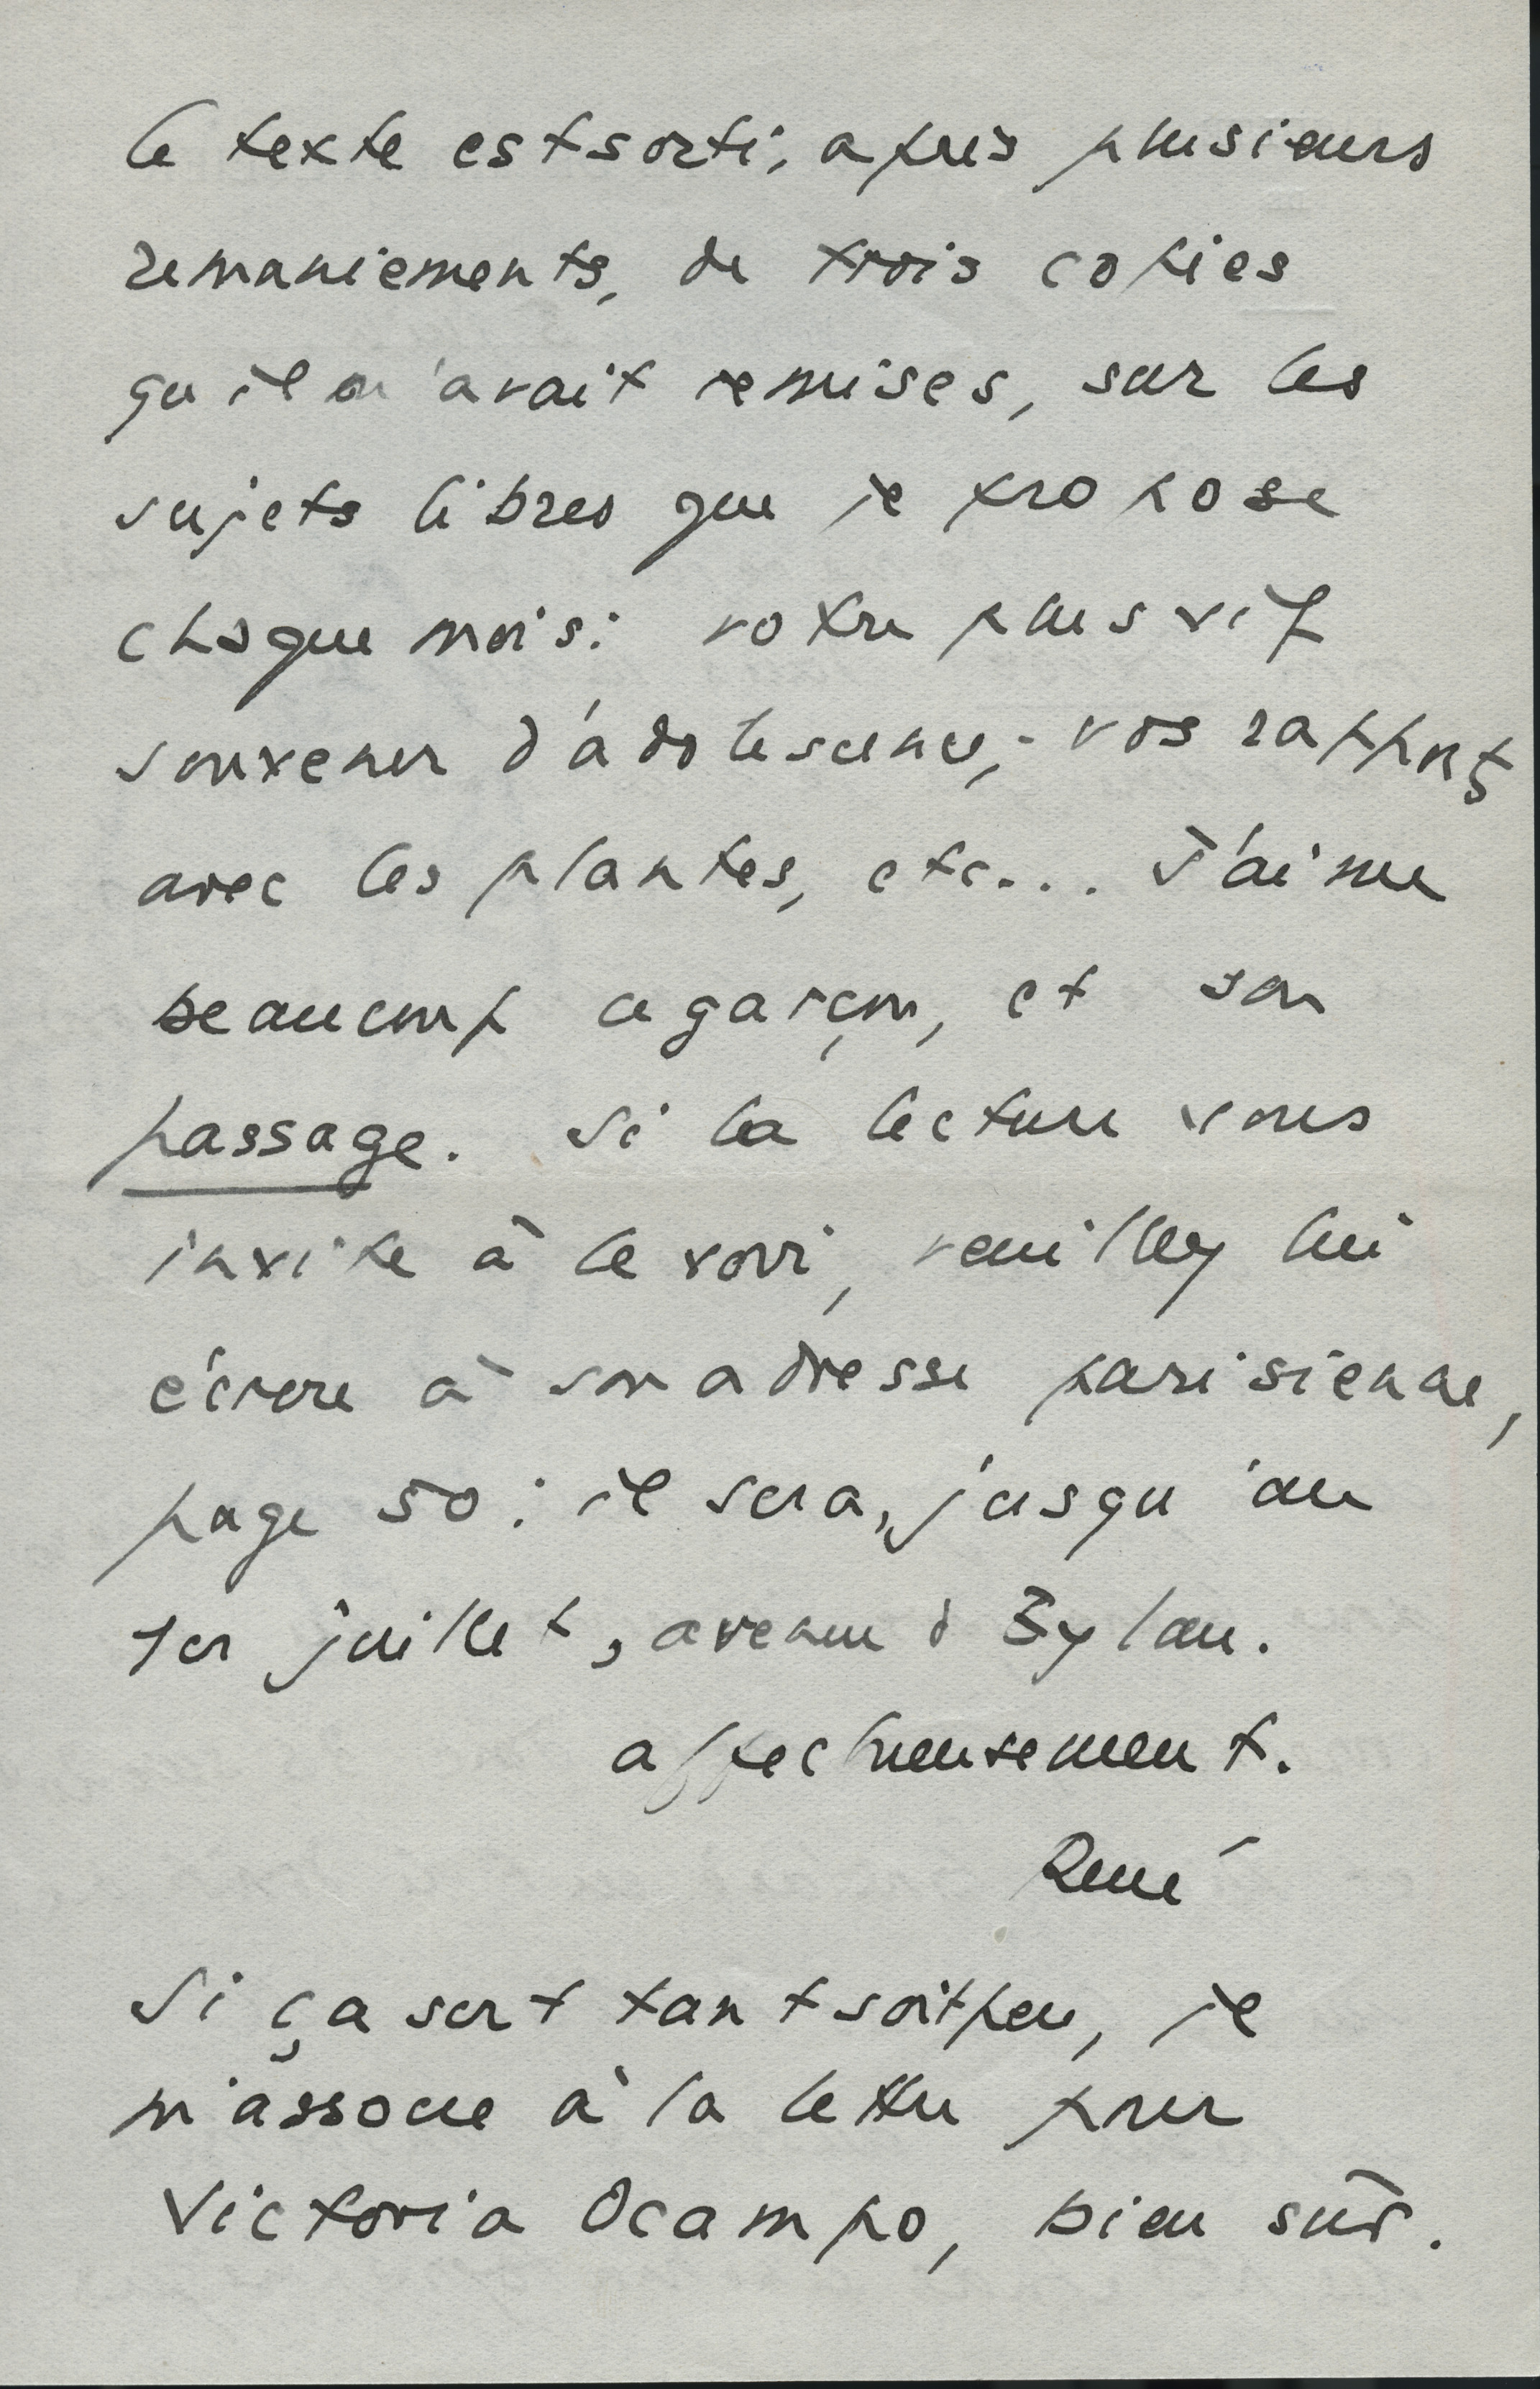 Le texte est sorti, après plusieurs
remaniements, de trois copies
qu'il m'avait remises, sur les
sujets libres que je propose
chaque mois: votre plus vif
souvenir d'adolescence; vos rapports
avec les plantes, etc... J'aime
beaucoup ce garçon, et son
passage. Si la lecture vous
invite à le voir, veuillez lui
écrire à son adresse parisienne,
page 50: il sera, jusqu'au
1er juillet, avenue d'Eylau.
affectueusement.
René
Si ça sert tant soit peu, je
m'associe à la lettre pour
Victoria Ocampo, bien sûr.